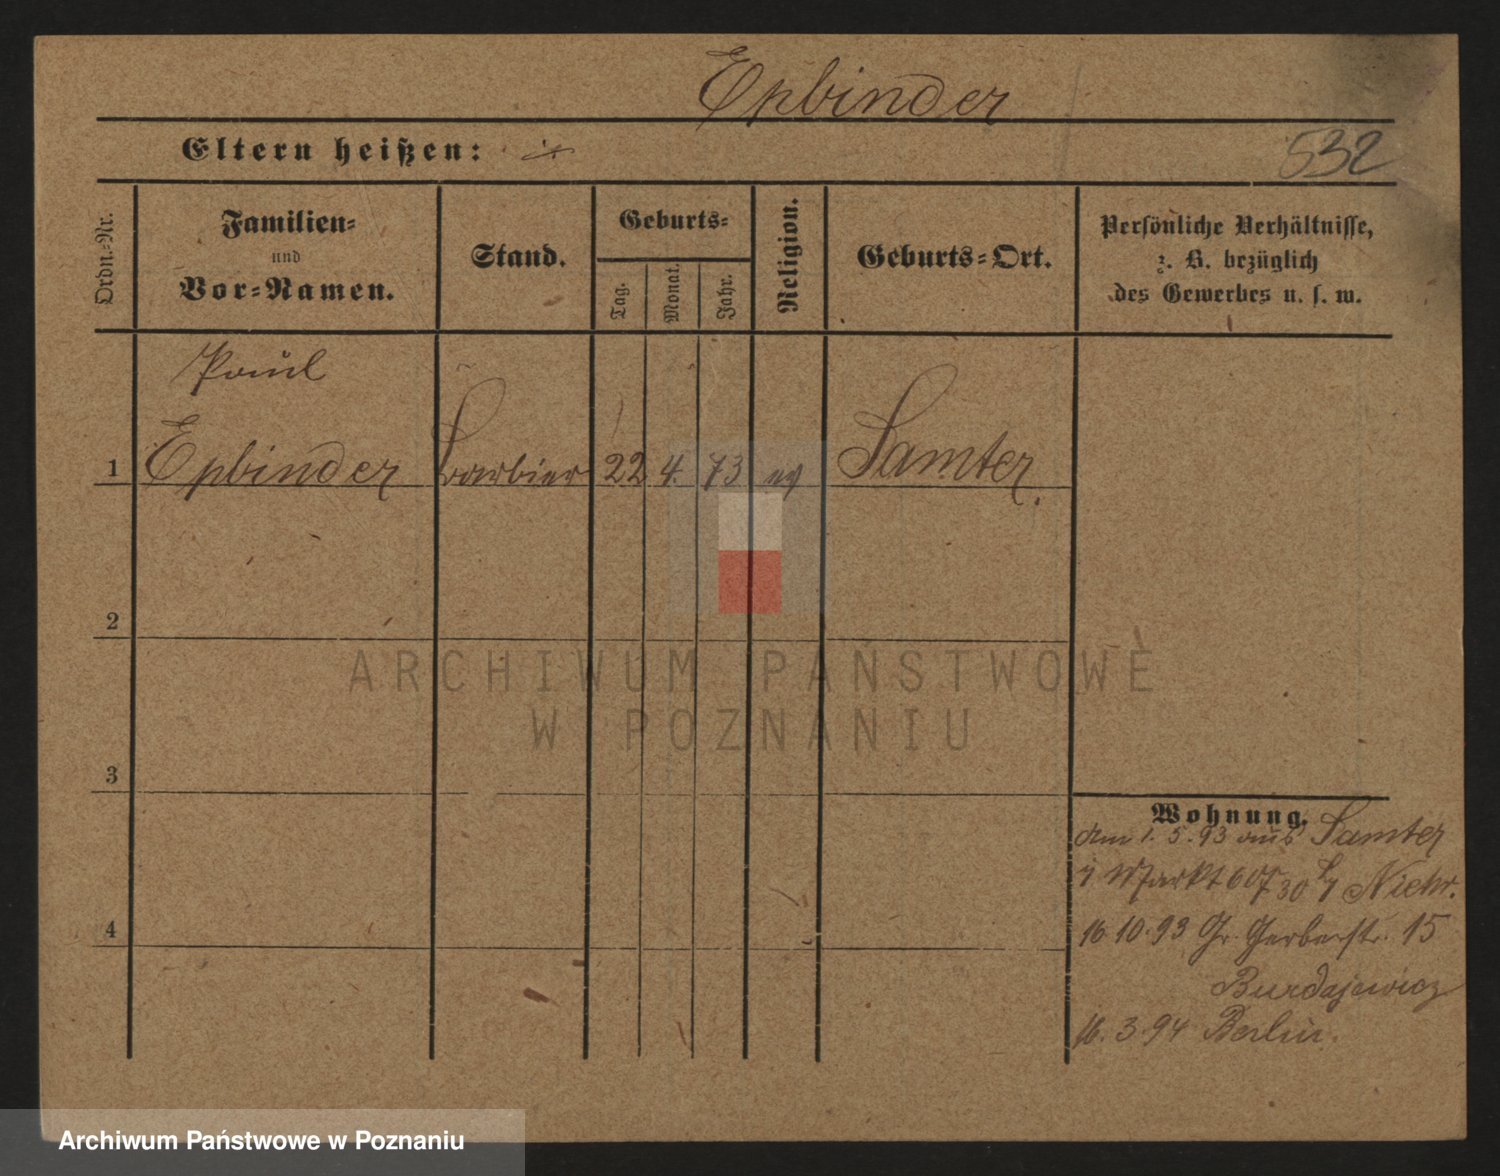 Epbinder
Eltern heißen:
532
Ordn.-Nr.
Familien-
und
Vor-Namen.
Stand.
Geburts-
Tag.
Monat.
Jahr.
Religion.
Geburts-Ort.
Persönliche Verhältnisse,
z. B. bezüglich
des Gewerbes u. s. w.
Paul
1 Epbinder Barbier 22 4. 73 ev Samter.
2
3
4
Wohnung.
Am 1. 5. 93 aus Samter
Markt
16 10. 93 Gr. Gerberstr. 15
Burdajewicz
16. 3. 94 Berlin.
ARCHIWUM PAŃSTWOWE
W POZNANIU
Archiwum Państwowe w Poznaniu